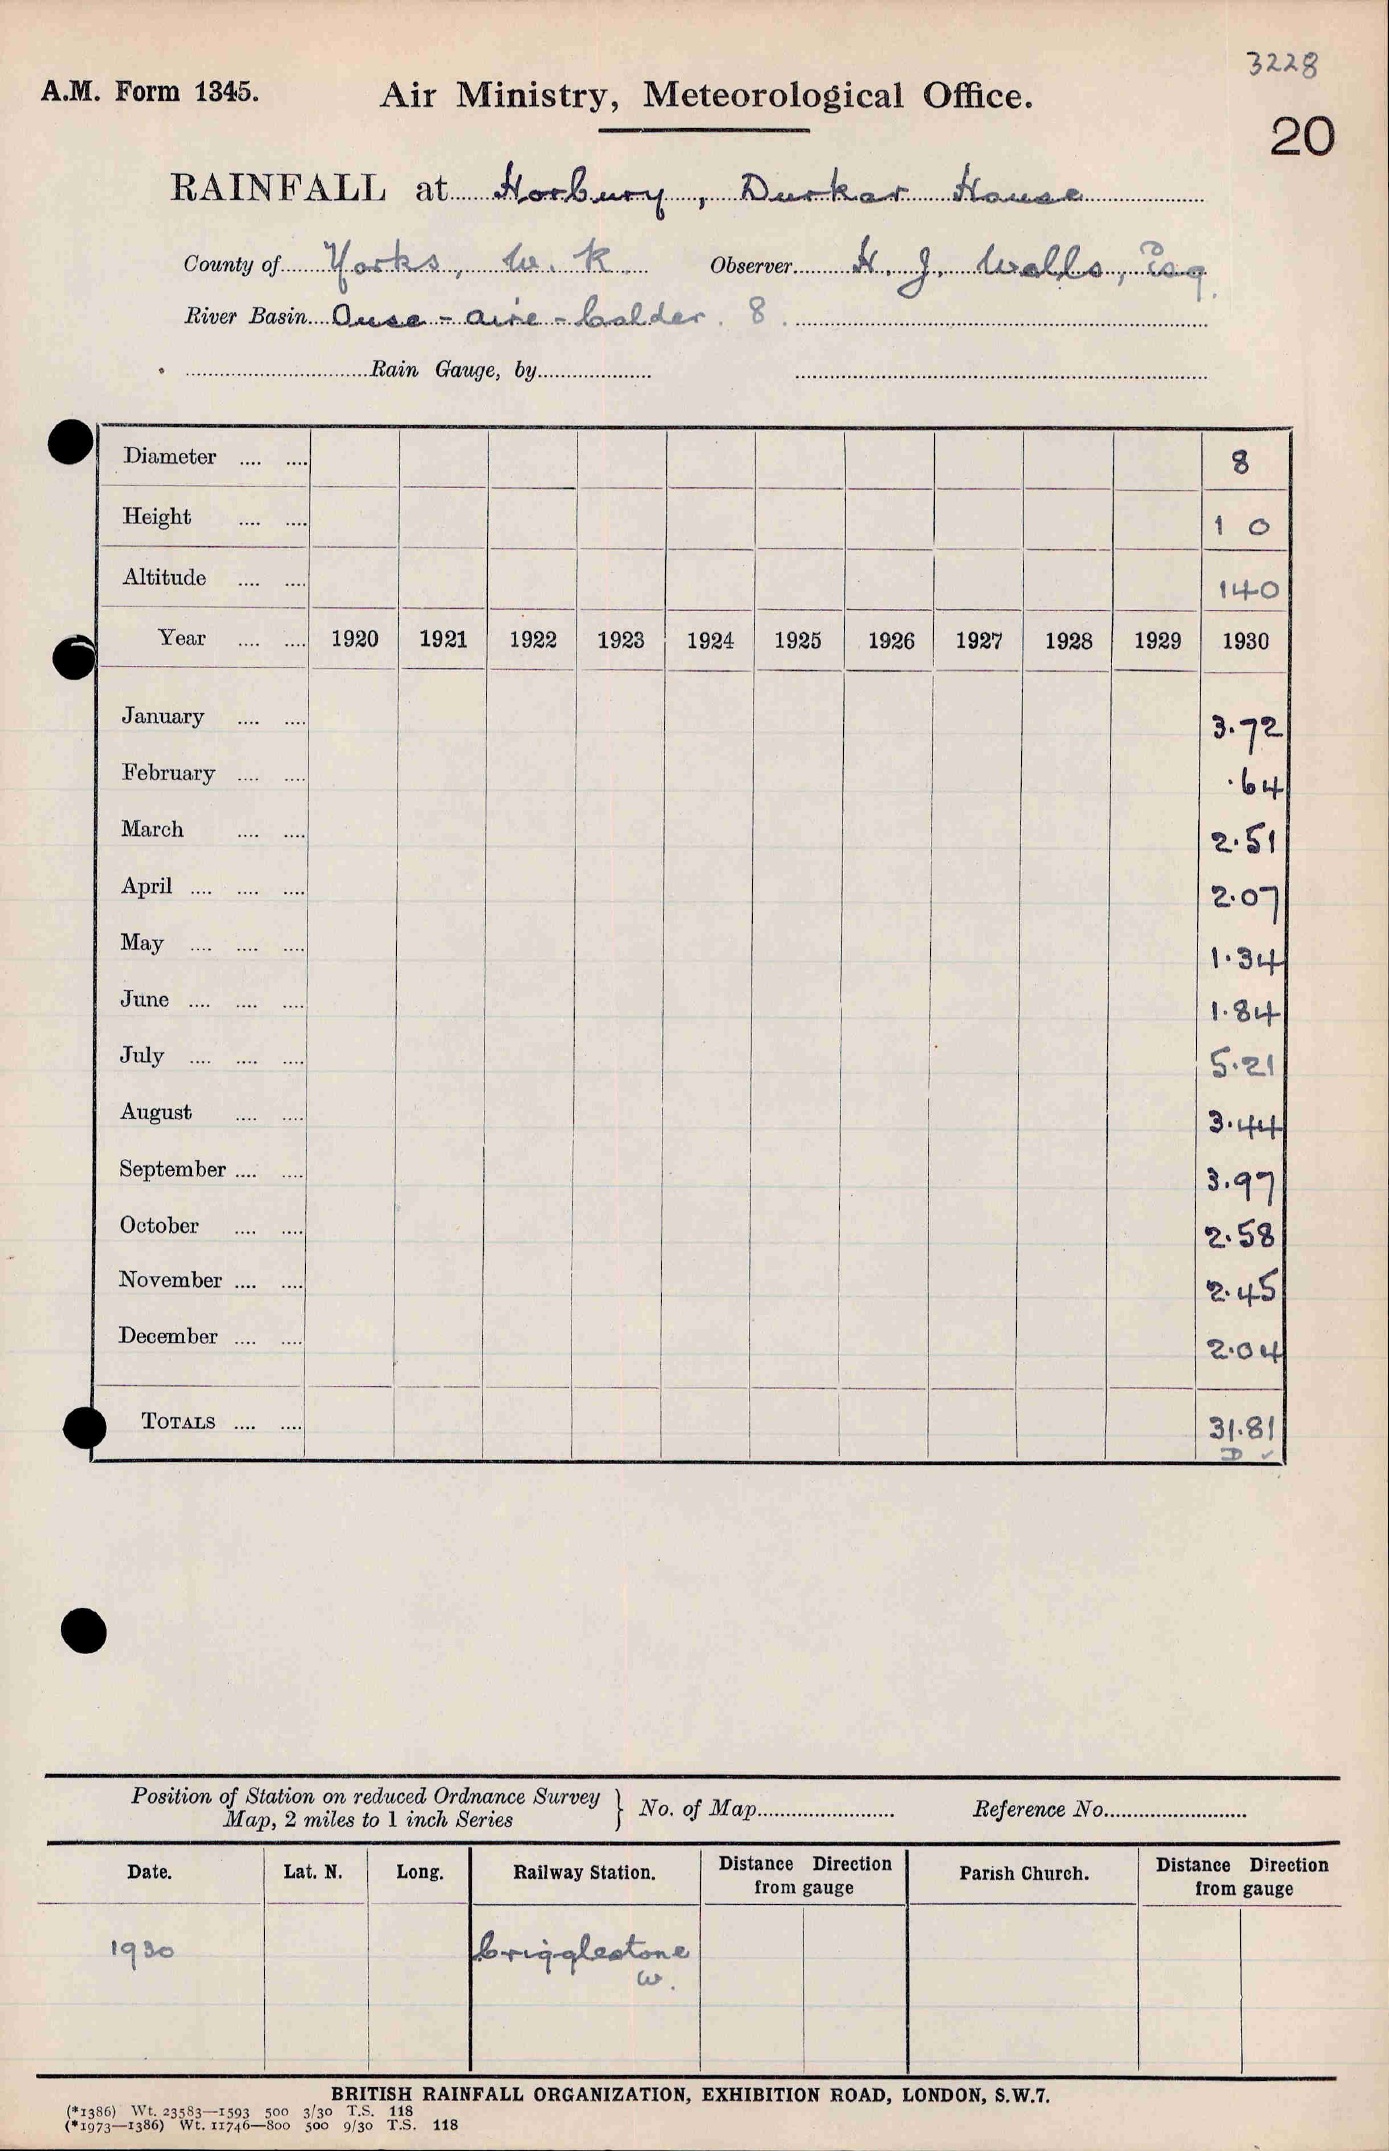 3228
A.M. Form 1345. Air Ministry, Meteorological Office.
20
RAINFALL at Horbury, Durkar House
County of Yorks, W. R. Observer H. J. Walls, Esq.
River Basin Ouse - Aire - Calder. 8.
Rain Gauge, by
Diameter .... .... 8
Height .... .... 1 0
Altitude .... .... 140
Year .... .... 1920 1921 1922 1923 1924 1925 1926 1927 1928 1929 1930
January .... .... 3.72
February .... .... .64
March .... .... 2.51
April .... .... .... 2.07
May .... .... .... 1.34
June .... .... .... 1.84
July .... .... .... 5.21
August .... .... 3.44
September .... .... 3.97
October .... .... 2.58
November .... .... 2.45
December .... .... 2.04
TOTALS .... .... 31.81
D ✓
Position of Station on reduced Ordnance Survey
Map, 2 miles to 1 inch Series } No. of Map Reference No.
Date. Lat. N. Long. Railway Station. Distance Direction from gauge Parish Church. Distance Direction from gauge
1930 Crigglestone
W.
BRITISH RAINFALL ORGANIZATION, EXHIBITION ROAD, LONDON, S.W.7.
(*1386) Wt. 23583—1593 500 3/30 T.S. 118
(*1973—1386) Wt. 11746—800 500 9/30 T.S. 118